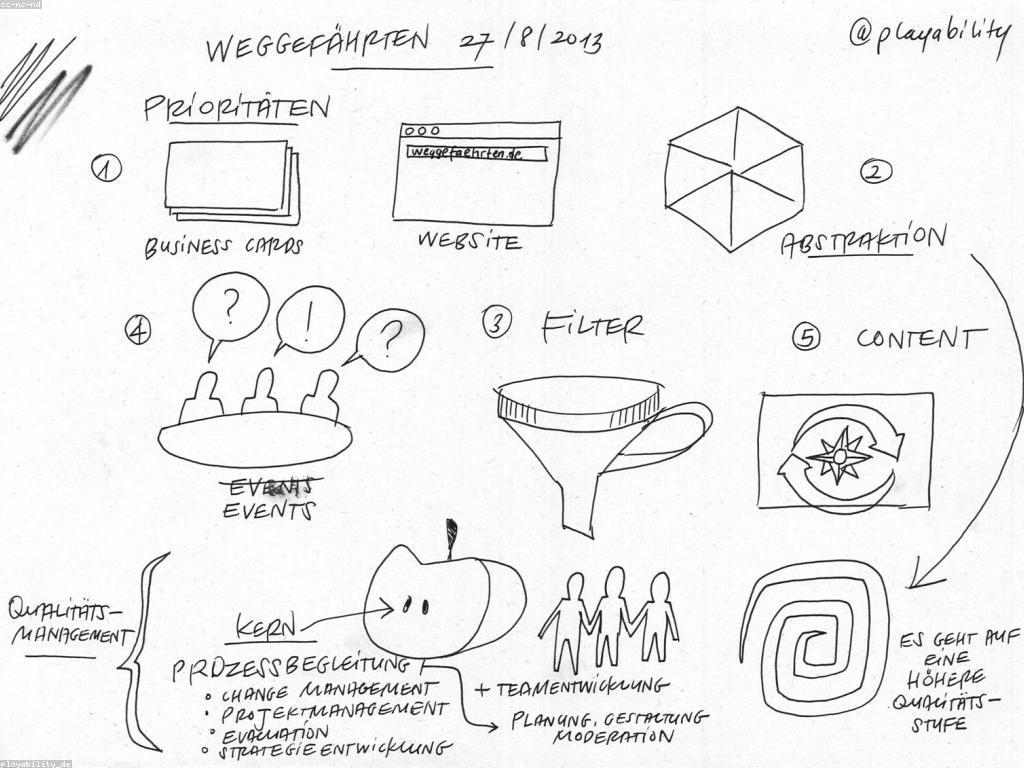 cc-nc-nd
WEGGEFÄHRTEN 27/8/2013
@playability
PRIORITÄTEN
1
BUSINESS CARDS
weggefaehrten.de
WEBSITE
2
ABSTRAKTION
4
?
!
?
EVENTS
EVENTS
3 FILTER
5 CONTENT
QUALITÄTS-
MANAGEMENT
KERN
PROZESSBEGLEITUNG
• CHANGE MANAGEMENT
• PROJEKTMANAGEMENT
• EVALUATION
• STRATEGIEENTWICKLUNG
+ TEAMENTWICKLUNG
PLANUNG, GESTALTUNG
MODERATION
ES GEHT AUF
EINE
HÖHERE
QUALITÄTS-
STUFE
playability_de